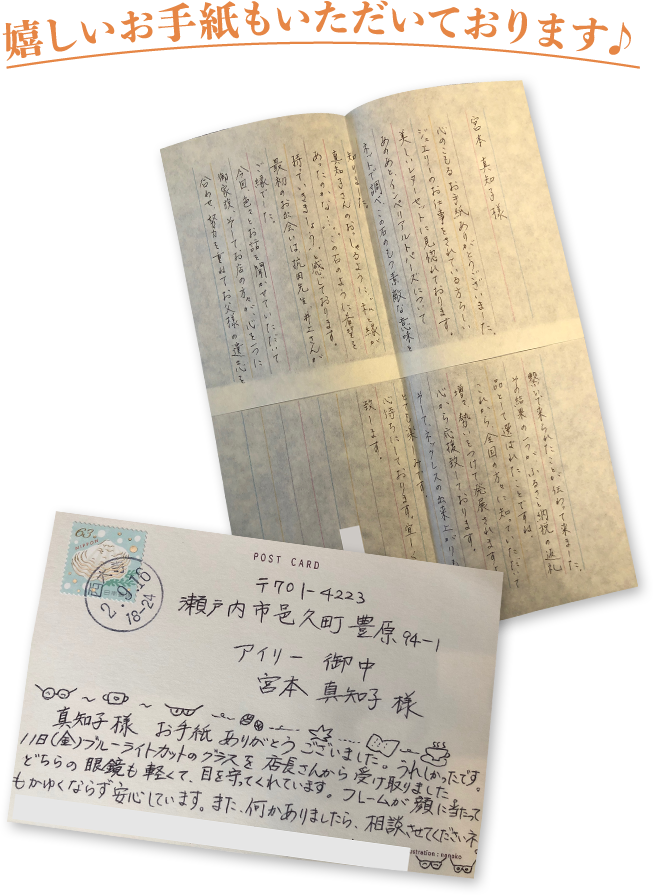 嬉しいお手紙もいただいております♪
宮本 真知子 様
心のこもるお手紙ありがとうございました。
ジュエリーのお仕事をされている方らしい
美しいレターセットに見惚れております。
あのあとインペリアルトパーズについて
ネットで調べ、この石のもつ素敵な意味を
知りました。
真知子さんのおっしゃるように、私と縁が
あったのかな… この石のように希望を
持っていきましょうと感じております。
最初のお出会いは
ご縁でした。
今回、色々とお話を聞かせていただいて
御家族、そしてお店の方々が心を一つに
合わせ、努力を重ねてお父様の遺志を
繋いで来られたことが伝わって来ました。
その結果の一つが、ふるさと納税の返礼
品として選ばれたことですね。
これから、全国の方々に知っていただいて
増々勢いをつけて発展されますよう
心から応援致しております。
そして、ネックレスの出来上がりを
とても楽しみです。
心待ちにしております。
致します。
63
NIPPON
西大寺
2.9.16
18-24
POST CARD
〒701-4223
瀬戸内市邑久町豊原94-1
アイリー 御中
宮本 真知子 様
真知子様 お手紙 ありがとう ございました。うれしかったです。
11日(金)ブルーライトカットのグラスを 店長さんから 受け取りました
どちらの 眼鏡も 軽くて、目を守ってくれています。フレームが 顔に当たって
もかゆくならず安心しています。また、何かありましたら、相談させてくださいネ。
illustration : nanako